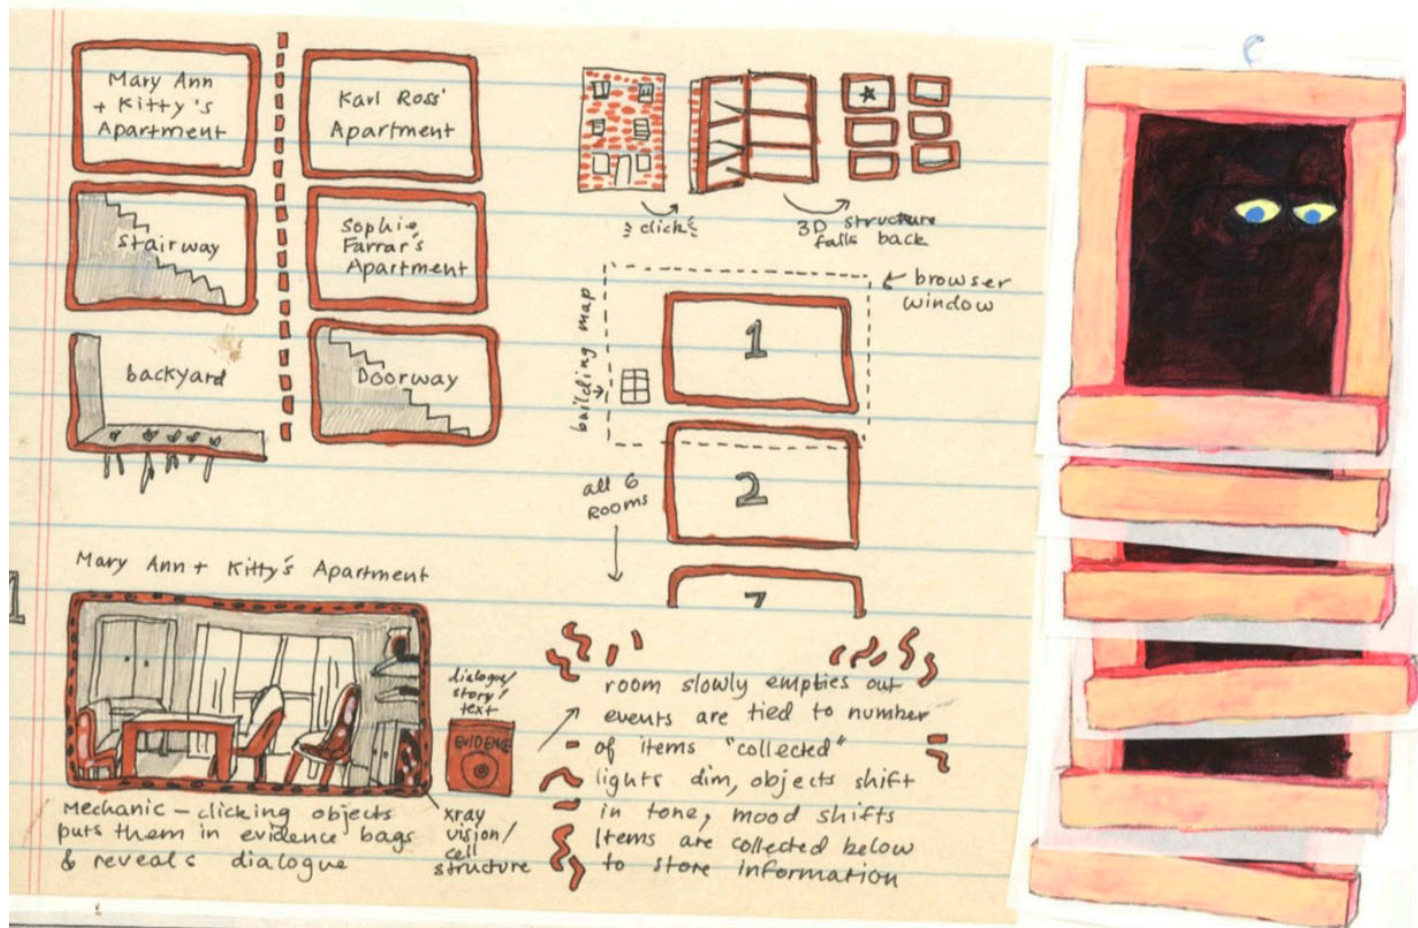 Mary Ann
+ Kitty's
Apartment
Karl Ross'
Apartment
Stairway
Sophie
Farrar's
Apartment
backyard
Doorway
click
3D structure
falls back
browser
window
building map
1
all 6
Rooms
2
Mary Ann + Kitty's Apartment
1
dialogue/
story/
text
EVIDENCE
Mechanic – clicking objects
puts them in evidence bags
& reveals dialogue
xray
vision/
cell
structure
room slowly empties out
events are tied to number
of items "collected"
lights dim, objects shift
in tone, mood shifts
Items are collected below
to store information